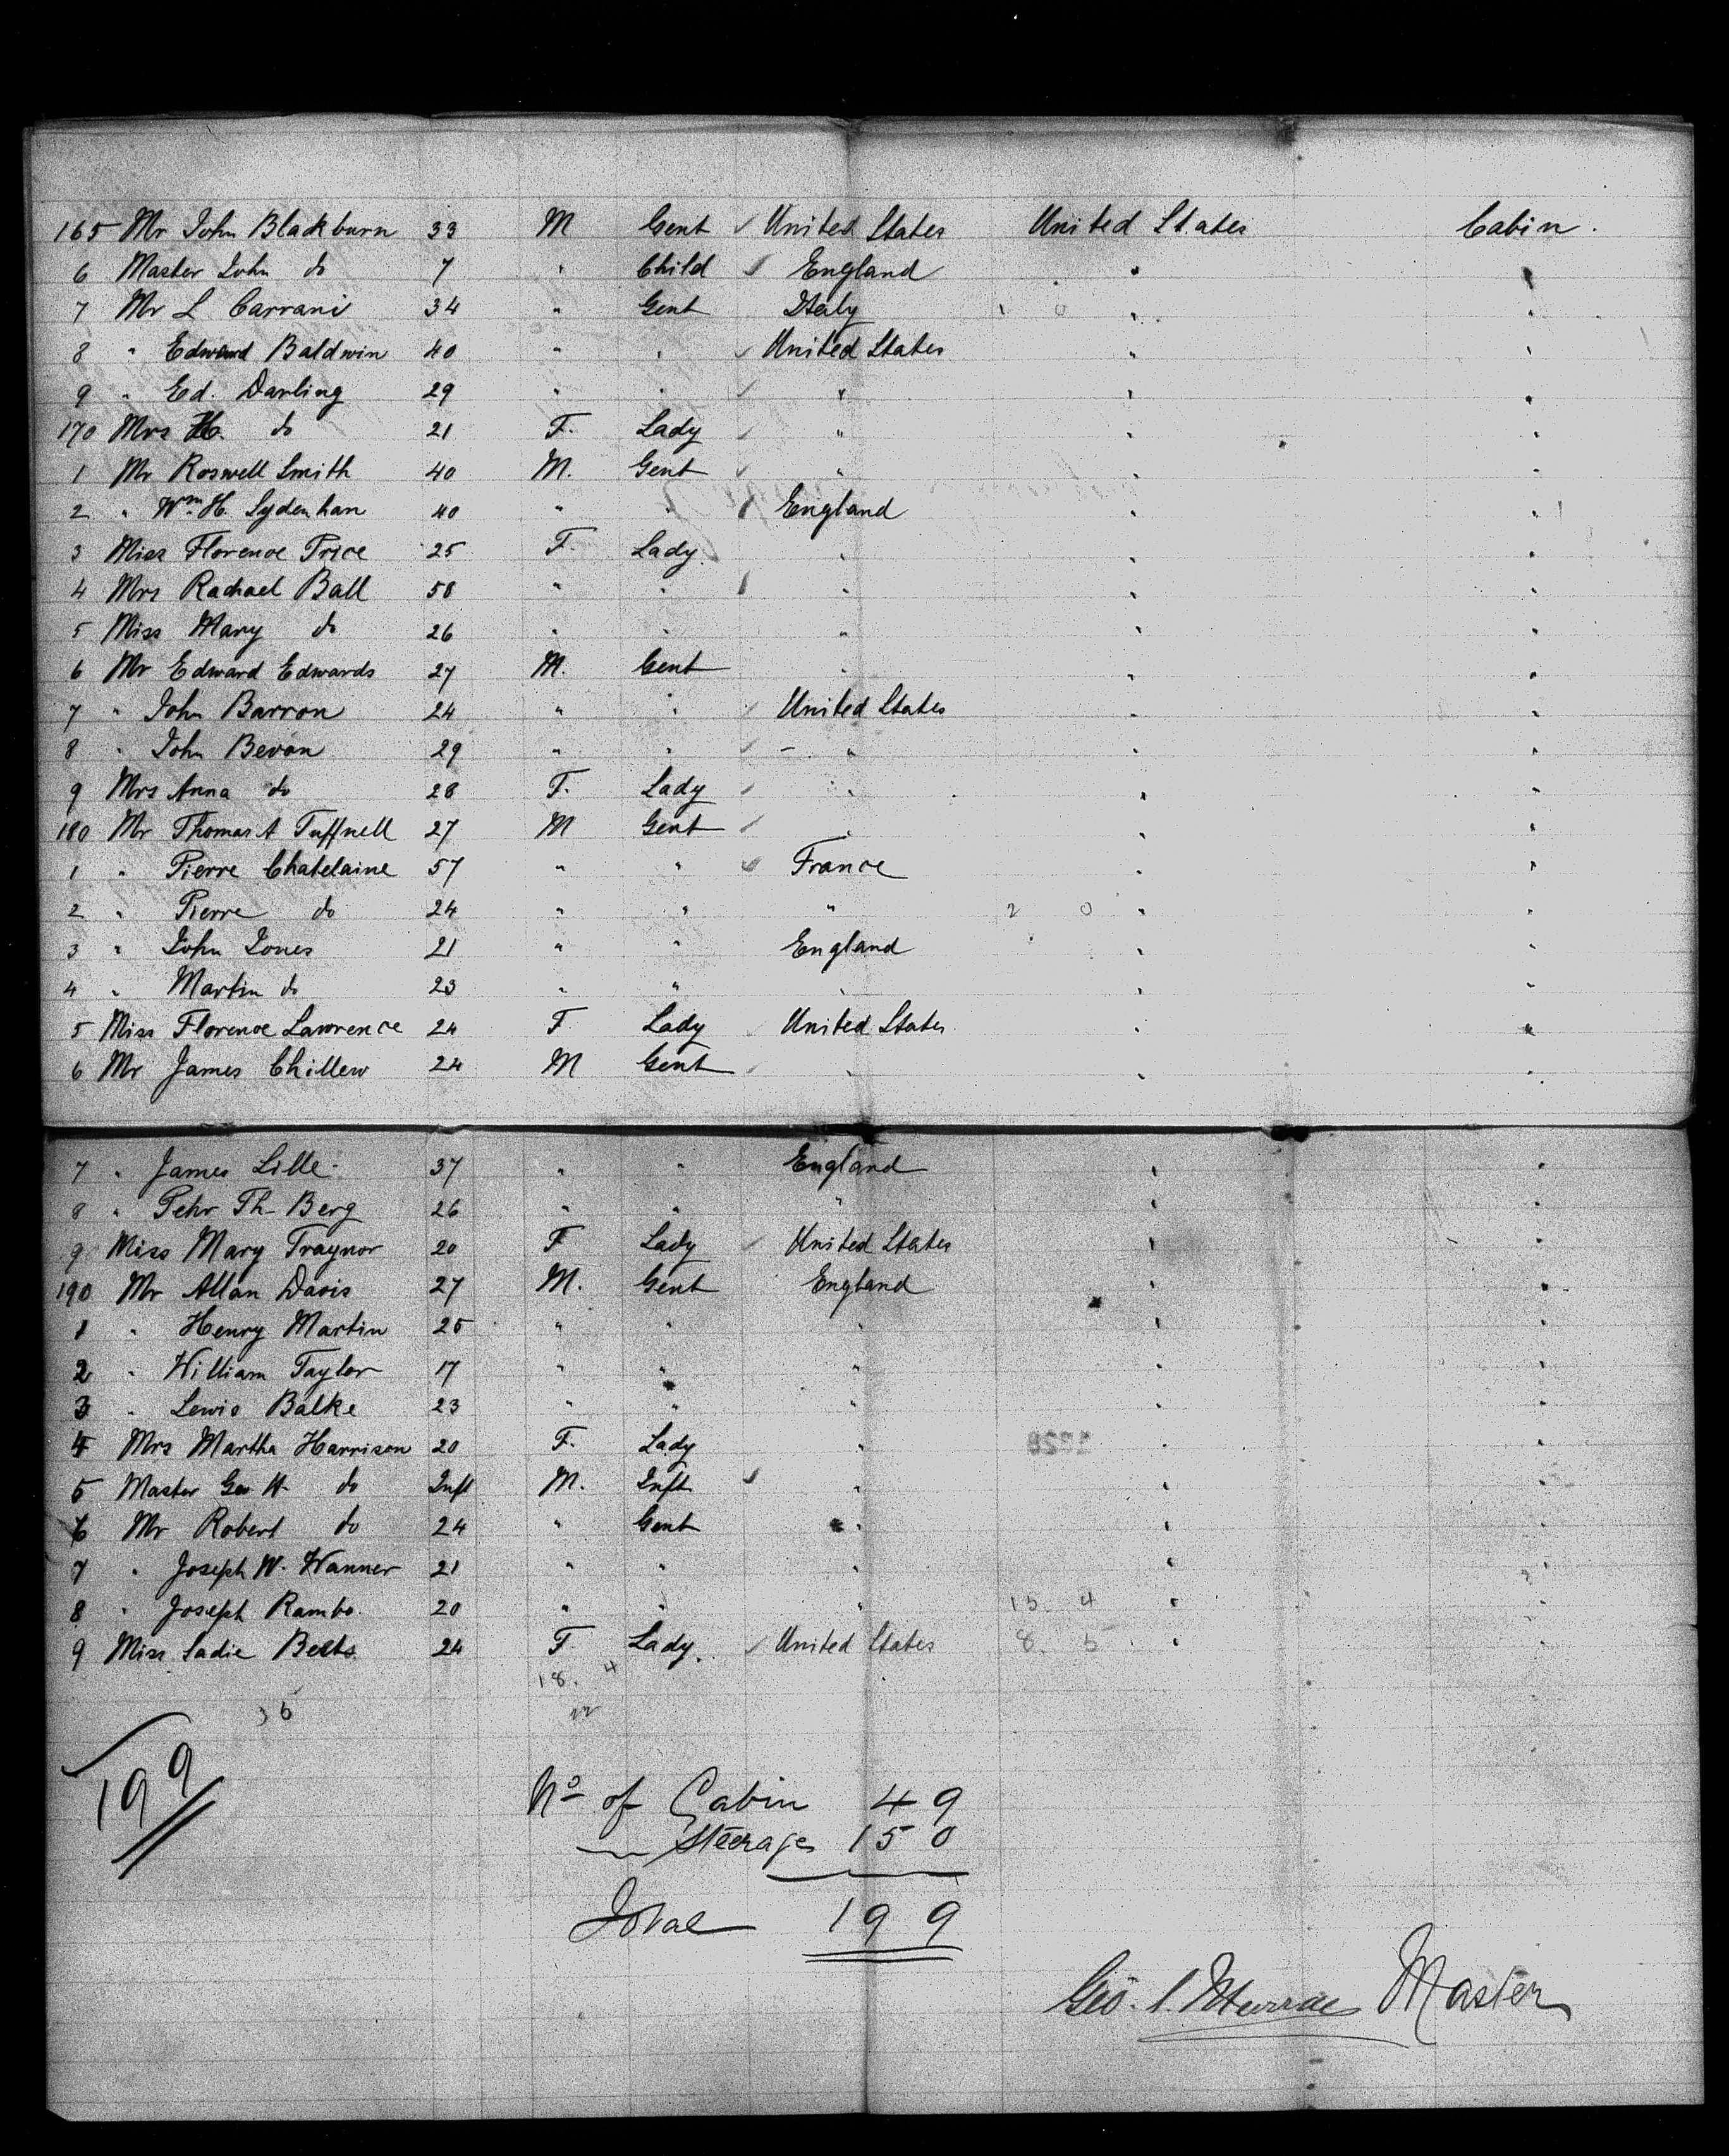 165 Mr John Blackburn 33 M Gent ✓ United States United States Cabin.
6 Master John do 7 " Child ✓ England " "
7 Mr L Carrani 34 " Gent Italy " "
8 " Edward Baldwin 40 " " ✓ United States " "
9 " Ed. Darling 29 " " ✓ " " "
170 Mrs H. do 21 F. Lady ✓ " " "
1 Mr Roswell Smith 40 M. Gent ✓ " " "
2 " Wm. H. Sydenhan 40 " " England " "
3 Miss Florence Price 25 F. Lady. " " "
4 Mrs Rachael Ball 58 " " " " "
5 Miss Mary do 26 " " " " "
6 Mr Edward Edwards 27 M. Gent " " "
7 " John Barron 24 " " ✓ United States " "
8 " John Bevan 29 " " ✓ " " "
9 Mrs Anna do 28 F. Lady ✓ " " "
180 Mr Thomas A Tuffnell 27 M Gent ✓ " " "
1 " Pierre Chatelaine 57 " " ✓ France " "
2 " Pierre do 24 " " " 2 0 " "
3 " John Jones 21 " " England " "
4 " Martin do 23 " " " " "
5 Miss Florence Lawrence 24 F Lady United States " "
6 Mr James Chillew 24 M Gent " " "
7 " James Lille 37 " " England " "
8 " Pehr Th- Berg 26 " " " " "
9 Miss Mary Traynor 20 F Lady ✓ United States " "
190 Mr Allan Davis 27 M. Gent England " "
1 " Henry Martin 25 " " " " "
2 " William Taylor 17 " " " " "
3 " Lewis Balke 23 " " " " "
4 Mrs Martha Harrison 20 F. Lady " " "
5 Master Geo H. do Inft M. Inft ✓ " " "
6 Mr Robert do 24 " Gent " " "
7 " Joseph W. Wanner 21 " " " " "
8 " Joseph Rambo. 20 " " " 15. 4 " "
9 Miss Sadie Betts 24 F Lady. ✓ United States 8. 5 " "
18. 4
22
199
No of Cabin 49
Steerage 150
Total 199
Geo. S. Murray Master